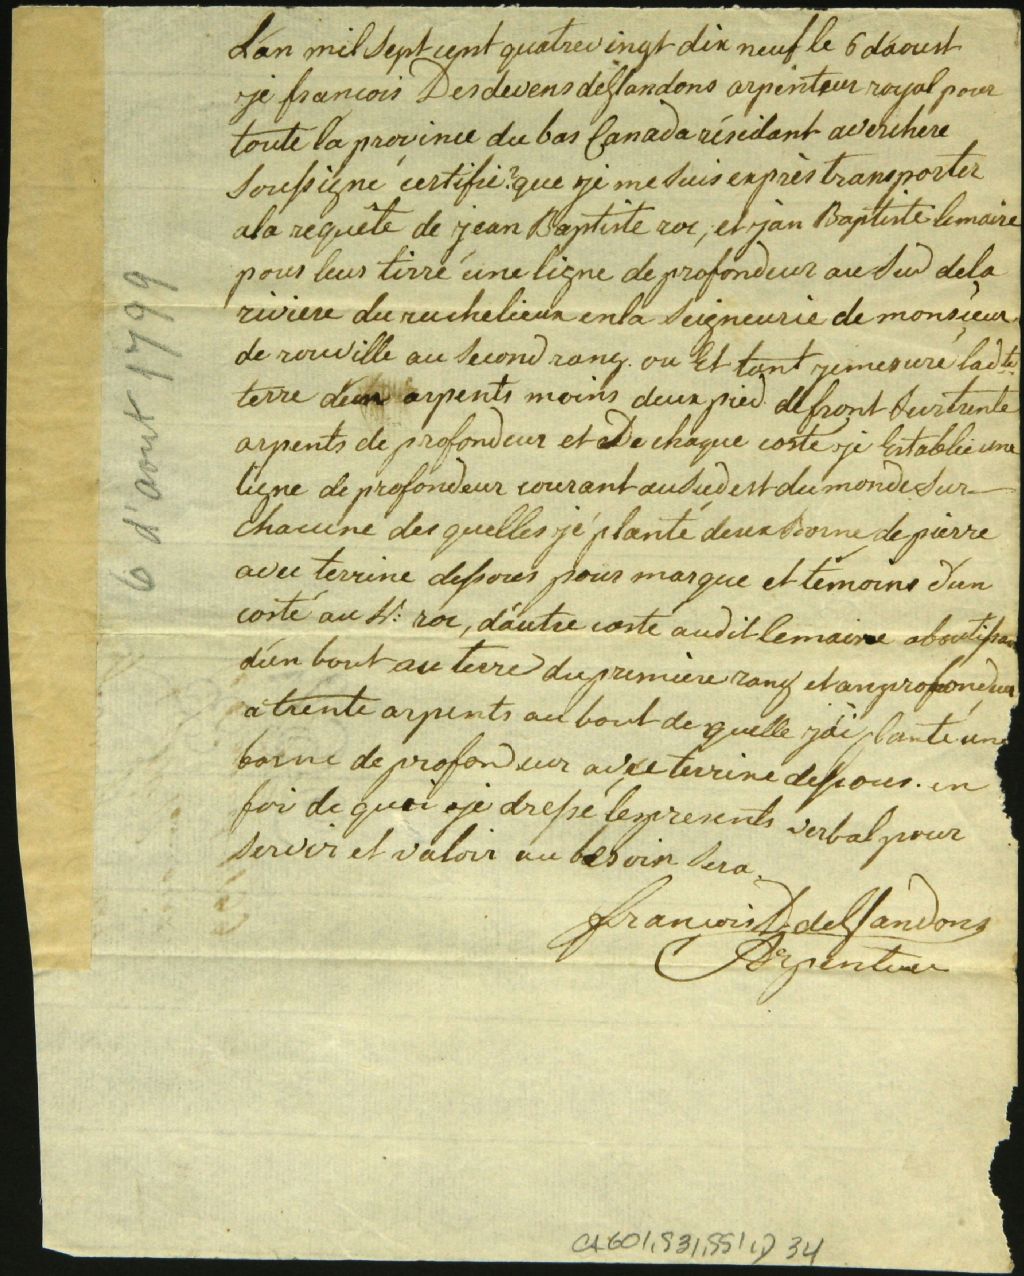 L'an mil sept cent quatrevingt dix neuf le 6 d'aoust
je francois Desdevens deglandons arpenteur royal pour
toute la province du bas Canada résidant a verchere
soussigné certifie que je me suis exprès transporter
a la requête de jean Baptiste roc, et jan Baptiste lemaire
pour leur tirré une ligne de profondeur au Sud de la
riviere du ruchelieux en la Seigneurie de monsieur
de rouville au Second rang. ou Et tant je mesuré lad.te
terre d'un arpents moins deux pied de front Sur trente
arpents de profondeur et De chaque costé je Establie une
ligne de profondeur courant au Sud est du monde Sur
chacune des quelles j'é planté deux Borne de pierre
avec terrine dessous pour marque et témoins d'un
costé au Sr. roc, d'autre coste audit lemaire aboutissan
d'un bout au terre du première rang et an profondeur
a trente arpents au bout de quelle j'ai planté une
borne de profondeur avec terrine dessous. en
foi de quoi je dressé le presents verbal pour
servir et valoir au besoin sera.
francois D. deglandons
Arpenteur
6 d'aout 1799
CA601,S31,SS1,D34